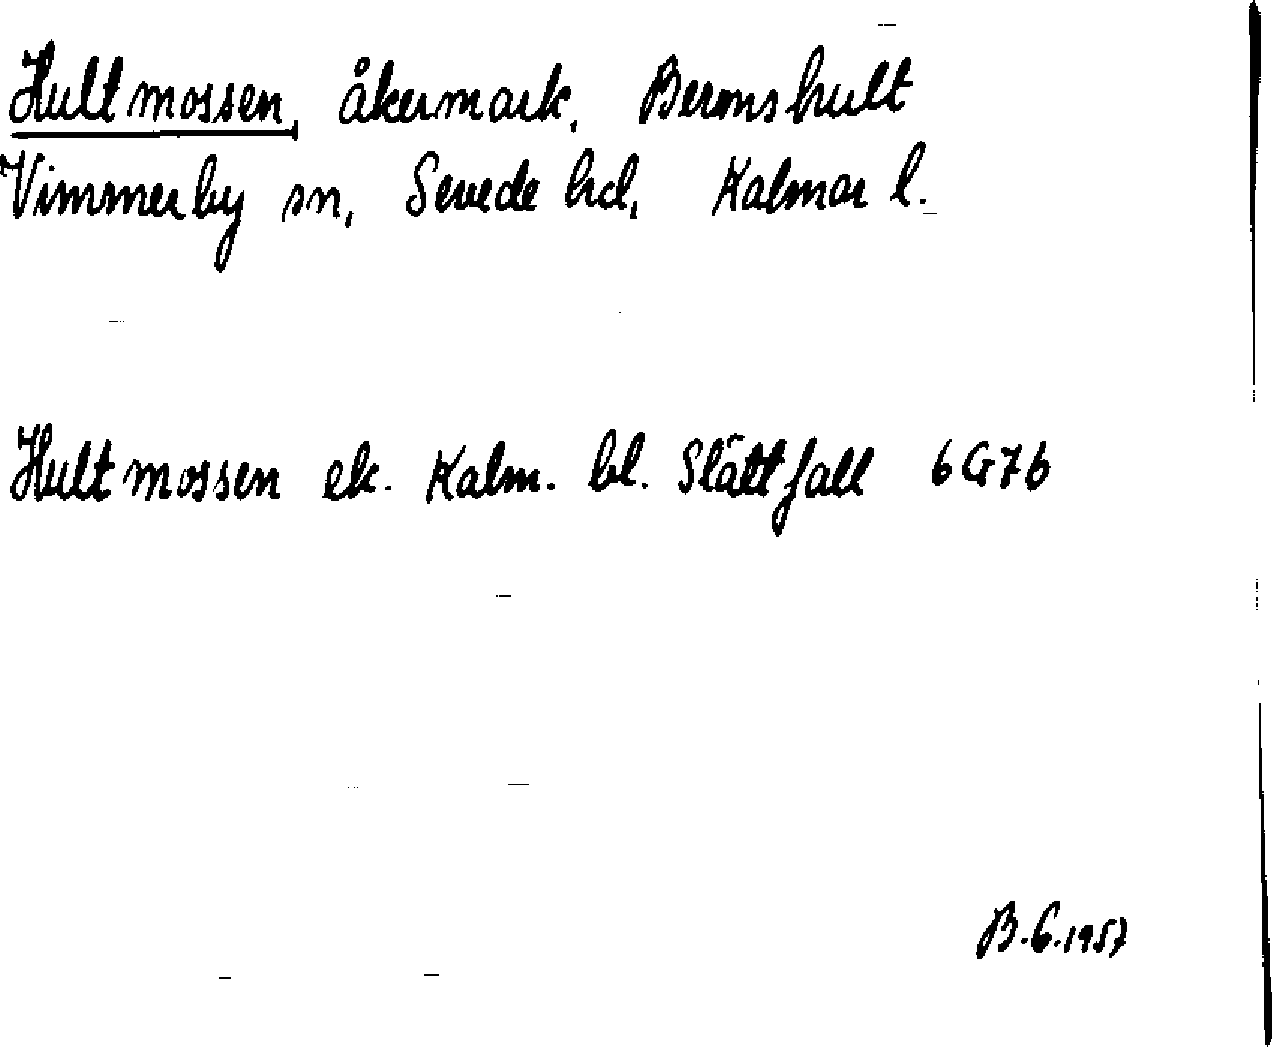 Hultmossen, åkermark, Bermshult
Vimmerby sn, Sevede hd, Kalmar l.
Hultmossen ek. Kalm. bl. Slättfall 6G7b
B.G.1957